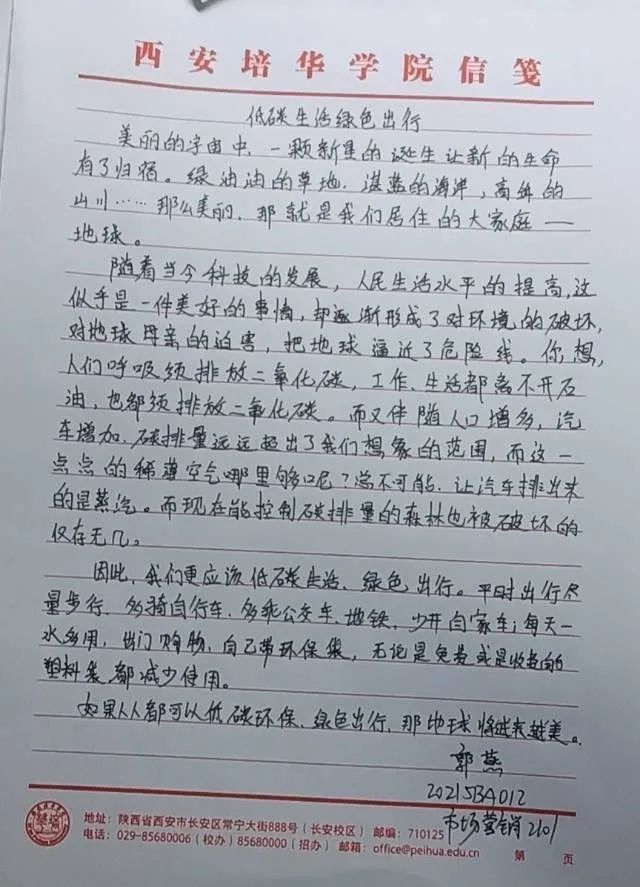 西安培华学院信笺
低碳生活绿色出行
美丽的宇宙中，一颗新星的诞生让新的生命
有了归宿。绿油油的草地，湛蓝的海洋，高耸的
山川……那么美丽，那就是我们居住的大家庭——
地球。
随着当今科技的发展，人民生活水平的提高，这
似乎是一件美好的事情，却逐渐形成了对环境的破坏，
对地球母亲的迫害，把地球逼近了危险线。你想，
人们呼吸须排放二氧化碳，工作、生活都离不开石
油，也都须排放二氧化碳。而又伴随人口增多，汽
车增加，碳排量远远超出了我们想象的范围，而这一
点点的稀薄空气哪里够呢？总不可能，让汽车排出来
的是蒸汽。而现在能控制碳排量的森林也被破坏的
仅存无几。
因此，我们更应该低碳生活、绿色出行。平时出行尽
量步行、多骑自行车、多乘公交车、地铁，少开自家车；每天一
水多用，出门购物，自己带环保袋，无论是免费或是收费的
塑料袋都减少使用。
如果人人都可以低碳环保、绿色出行，那地球将越来越美。
郭燕
20215BA012
市场营销2101
地址：陕西省西安市长安区常宁大街888号（长安校区） 邮编：710125
电话：029-85680006（校办）85680000（招办） 邮箱：office@peihua.edu.cn 第 页